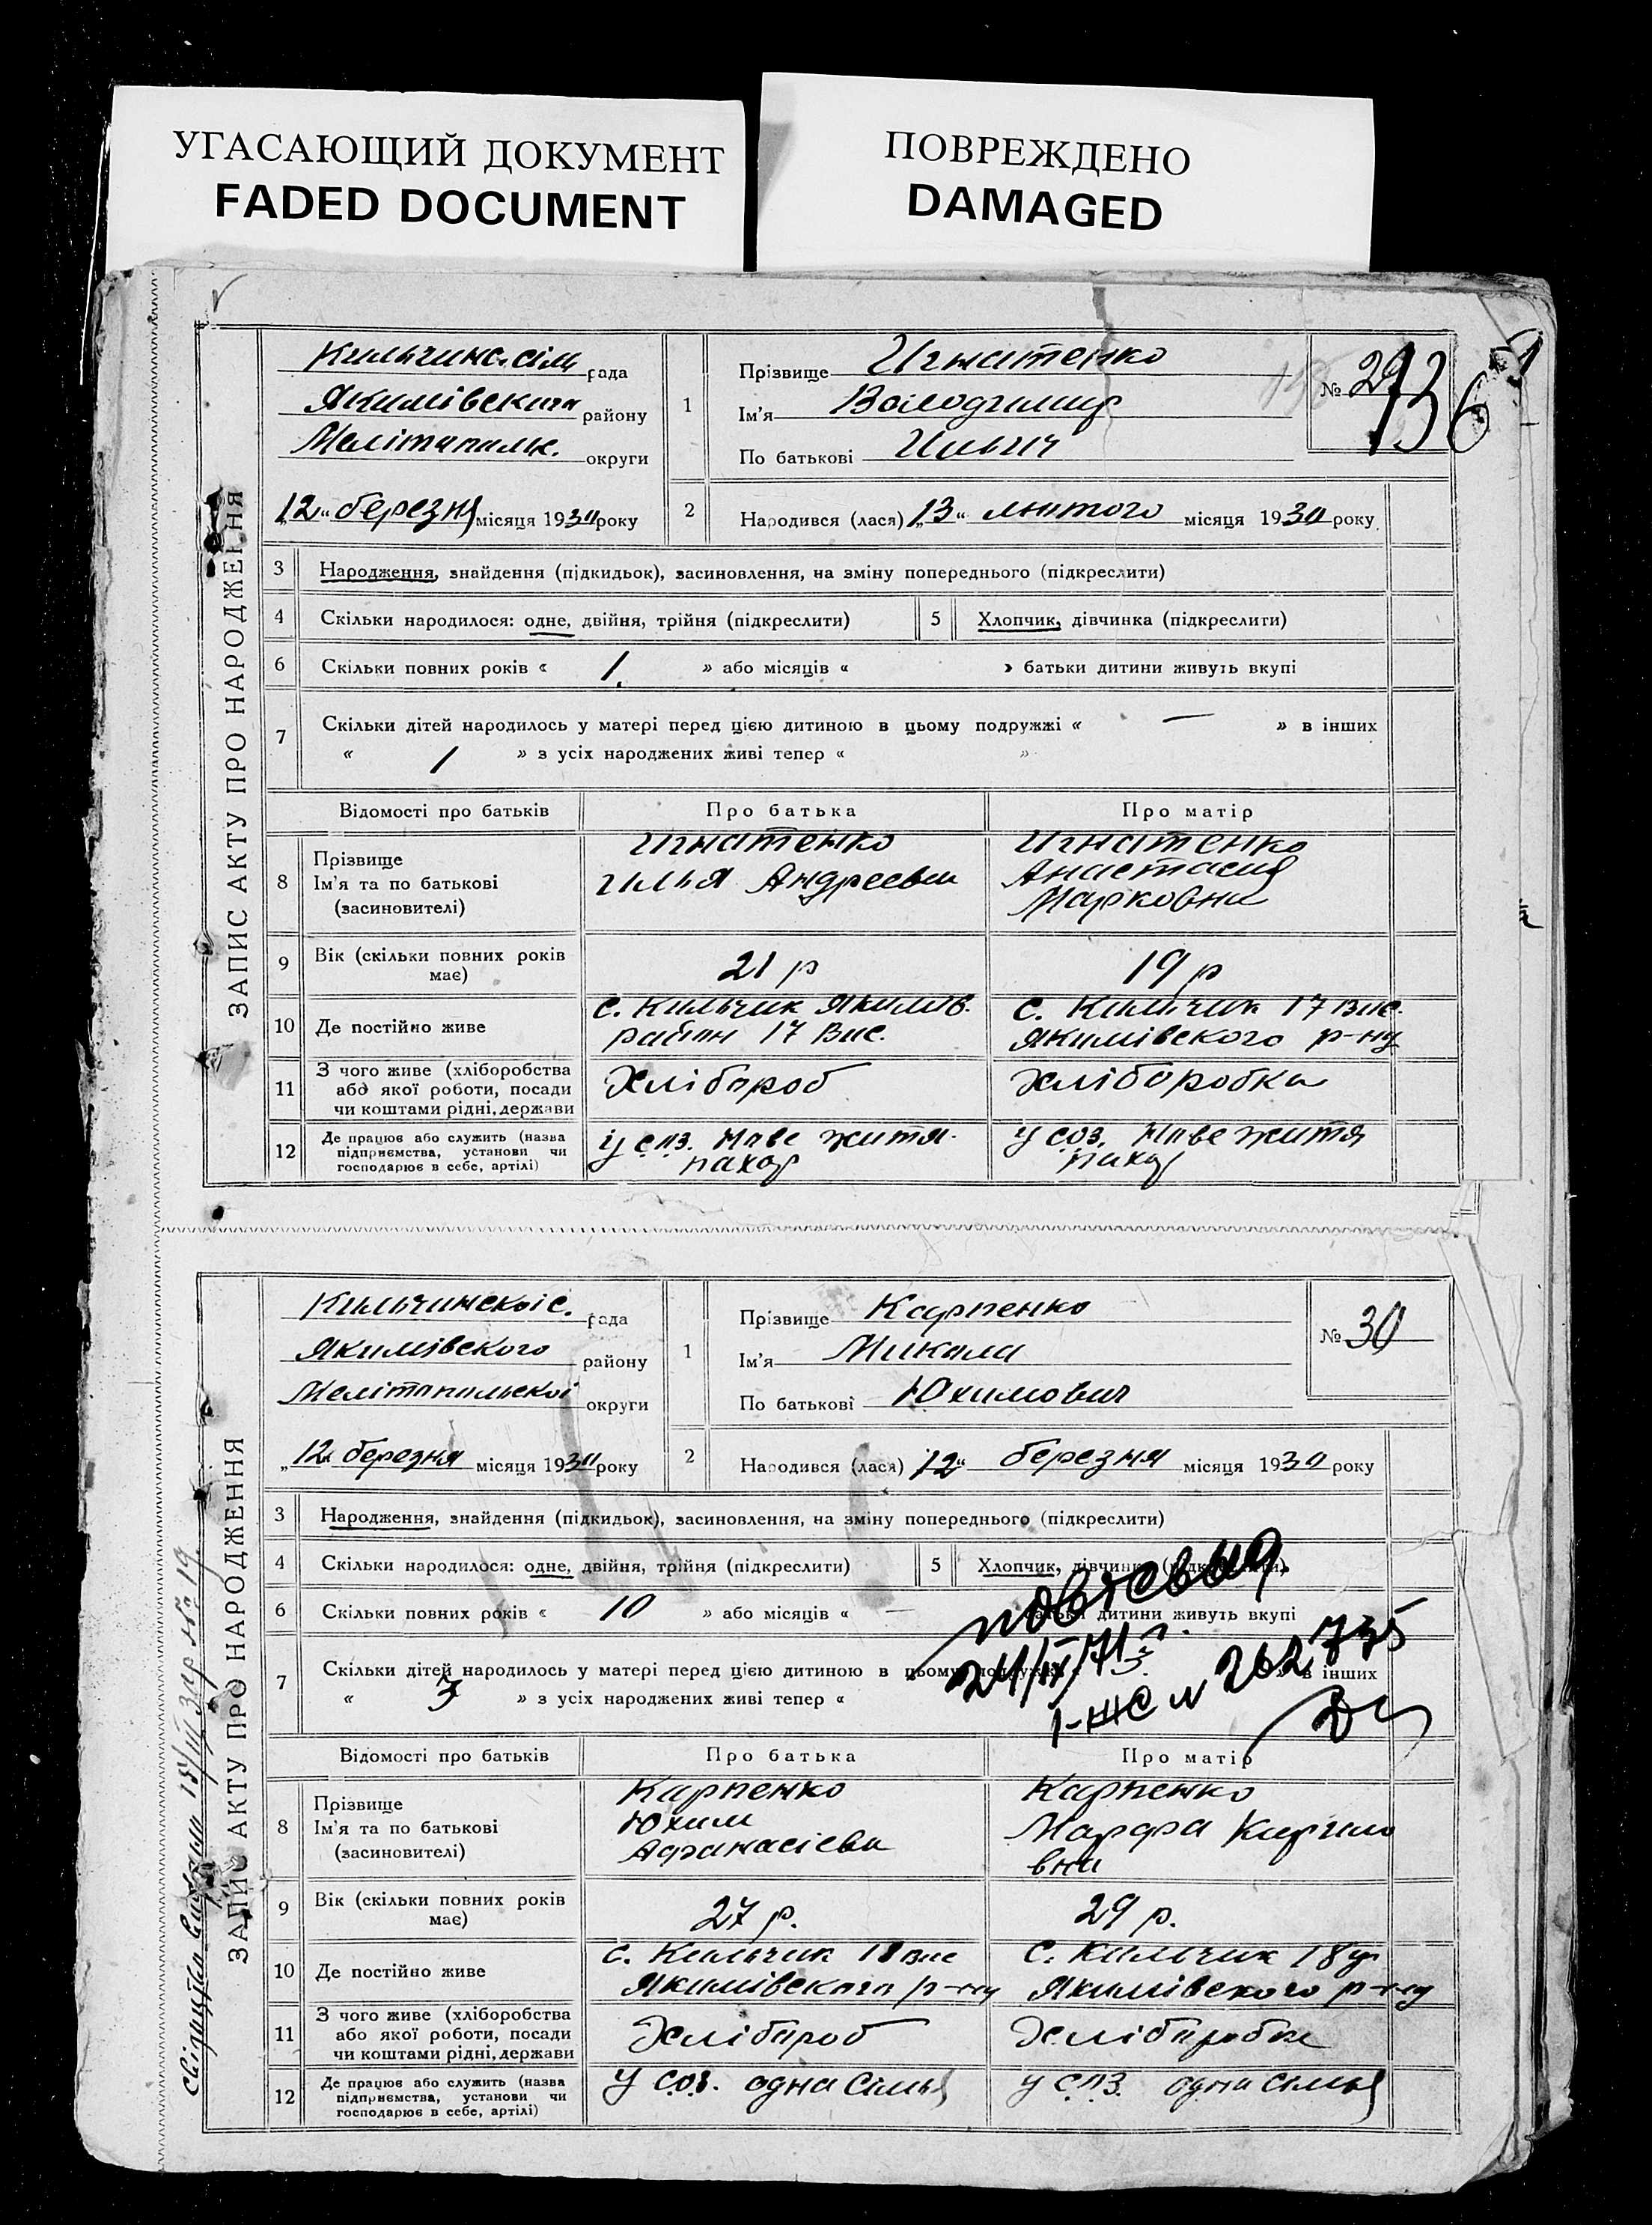 УГАСАЮЩИЙ ДОКУМЕНТ
FADED DOCUMENT
ПОВРЕЖДЕНО
DAMAGED
ЗАПИС АКТУ ПРО НАРОДЖЕННЯ
Кильчинс. сіль рада
Якимівского району
Мелітопольс. округи
„12“ березня місяця 1930 року
1 Прізвище Игнатенко
Ім'я Володимир
По батькові Ильич
№ 29
136
2 Народився (лася) „13“ лютого місяця 1930 року
3 Народження, знайдення (підкидьок), засиновлення, на зміну попереднього (підкреслити)
4 Скільки народилося: одне, двійня, трійня (підкреслити) 5 Хлопчик, дівчинка (підкреслити)
6 Скільки повних років « 1. » або місяців « » батьки дитини живуть вкупі
7 Скільки дітей народилось у матері перед цією дитиною в цьому подружжі « — » в інших
« 1 » з усіх народжених живі тепер « »
Відомості про батьків Про батька Про матір
8 Прізвище
Ім'я та по батькові
(засиновителі)
Игнатенко
Илья Андреевич
Игнатенко
Анастасия
Марковна
9 Вік (скільки повних років має) 21 р 19 р
10 Де постійно живе
с. Кильчик Якимів.
район 17 Вис.
с. Кильчик 17 вис.
Якимівского р-ну
11 З чого живе (хліборобства
або якої роботи, посади
чи коштами рідні, держави
Хлібороб
Хліборобка
12 Де працює або служить (назва
підприємства, установи чи
господарює в себе, артілі)
у соз. Нове життя
у соз. Нове життя
ЗАПИС АКТУ ПРО НАРОДЖЕННЯ
Кильчинскоі с. рада
Якимівского району
Мелітопольскоі округи
„12“ березня місяця 1930 року
1 Прізвище Карпенко
Ім'я Микола
По батькові Юхимович
№ 30
2 Народився (лася) „12“ березня місяця 1930 року
3 Народження, знайдення (підкидьок), засиновлення, на зміну попереднього (підкреслити)
4 Скільки народилося: одне, двійня, трійня (підкреслити) 5 Хлопчик, дівчинка (підкреслити)
6 Скільки повних років « 10 » або місяців « — батьки дитини живуть вкупі
7 Скільки дітей народилось у матері перед цією дитиною в цьому подружжі « 3. » в інших
« 3 » з усіх народжених живі тепер «
24/II/71 г.
I-ЖС № 262735
Відомості про батьків Про батька Про матір
8 Прізвище
Ім'я та по батькові
(засиновителі)
Карпенко
Юхим
Афанасієви
Карпенко
Марфа Кирило
вна
9 Вік (скільки повних років має) 27 р. 29 р.
10 Де постійно живе
с. Кильчик 18 вис
Якимівского р-ну
с. Кильчик 18 у
Якимівского р-ну
11 З чого живе (хліборобства
або якої роботи, посади
чи коштами рідні, держави
Хлібороб
Хлібороби
12 Де працює або служить (назва
підприємства, установи чи
господарює в себе, артілі)
у соз. одна Сімья
у соз. одна сімья